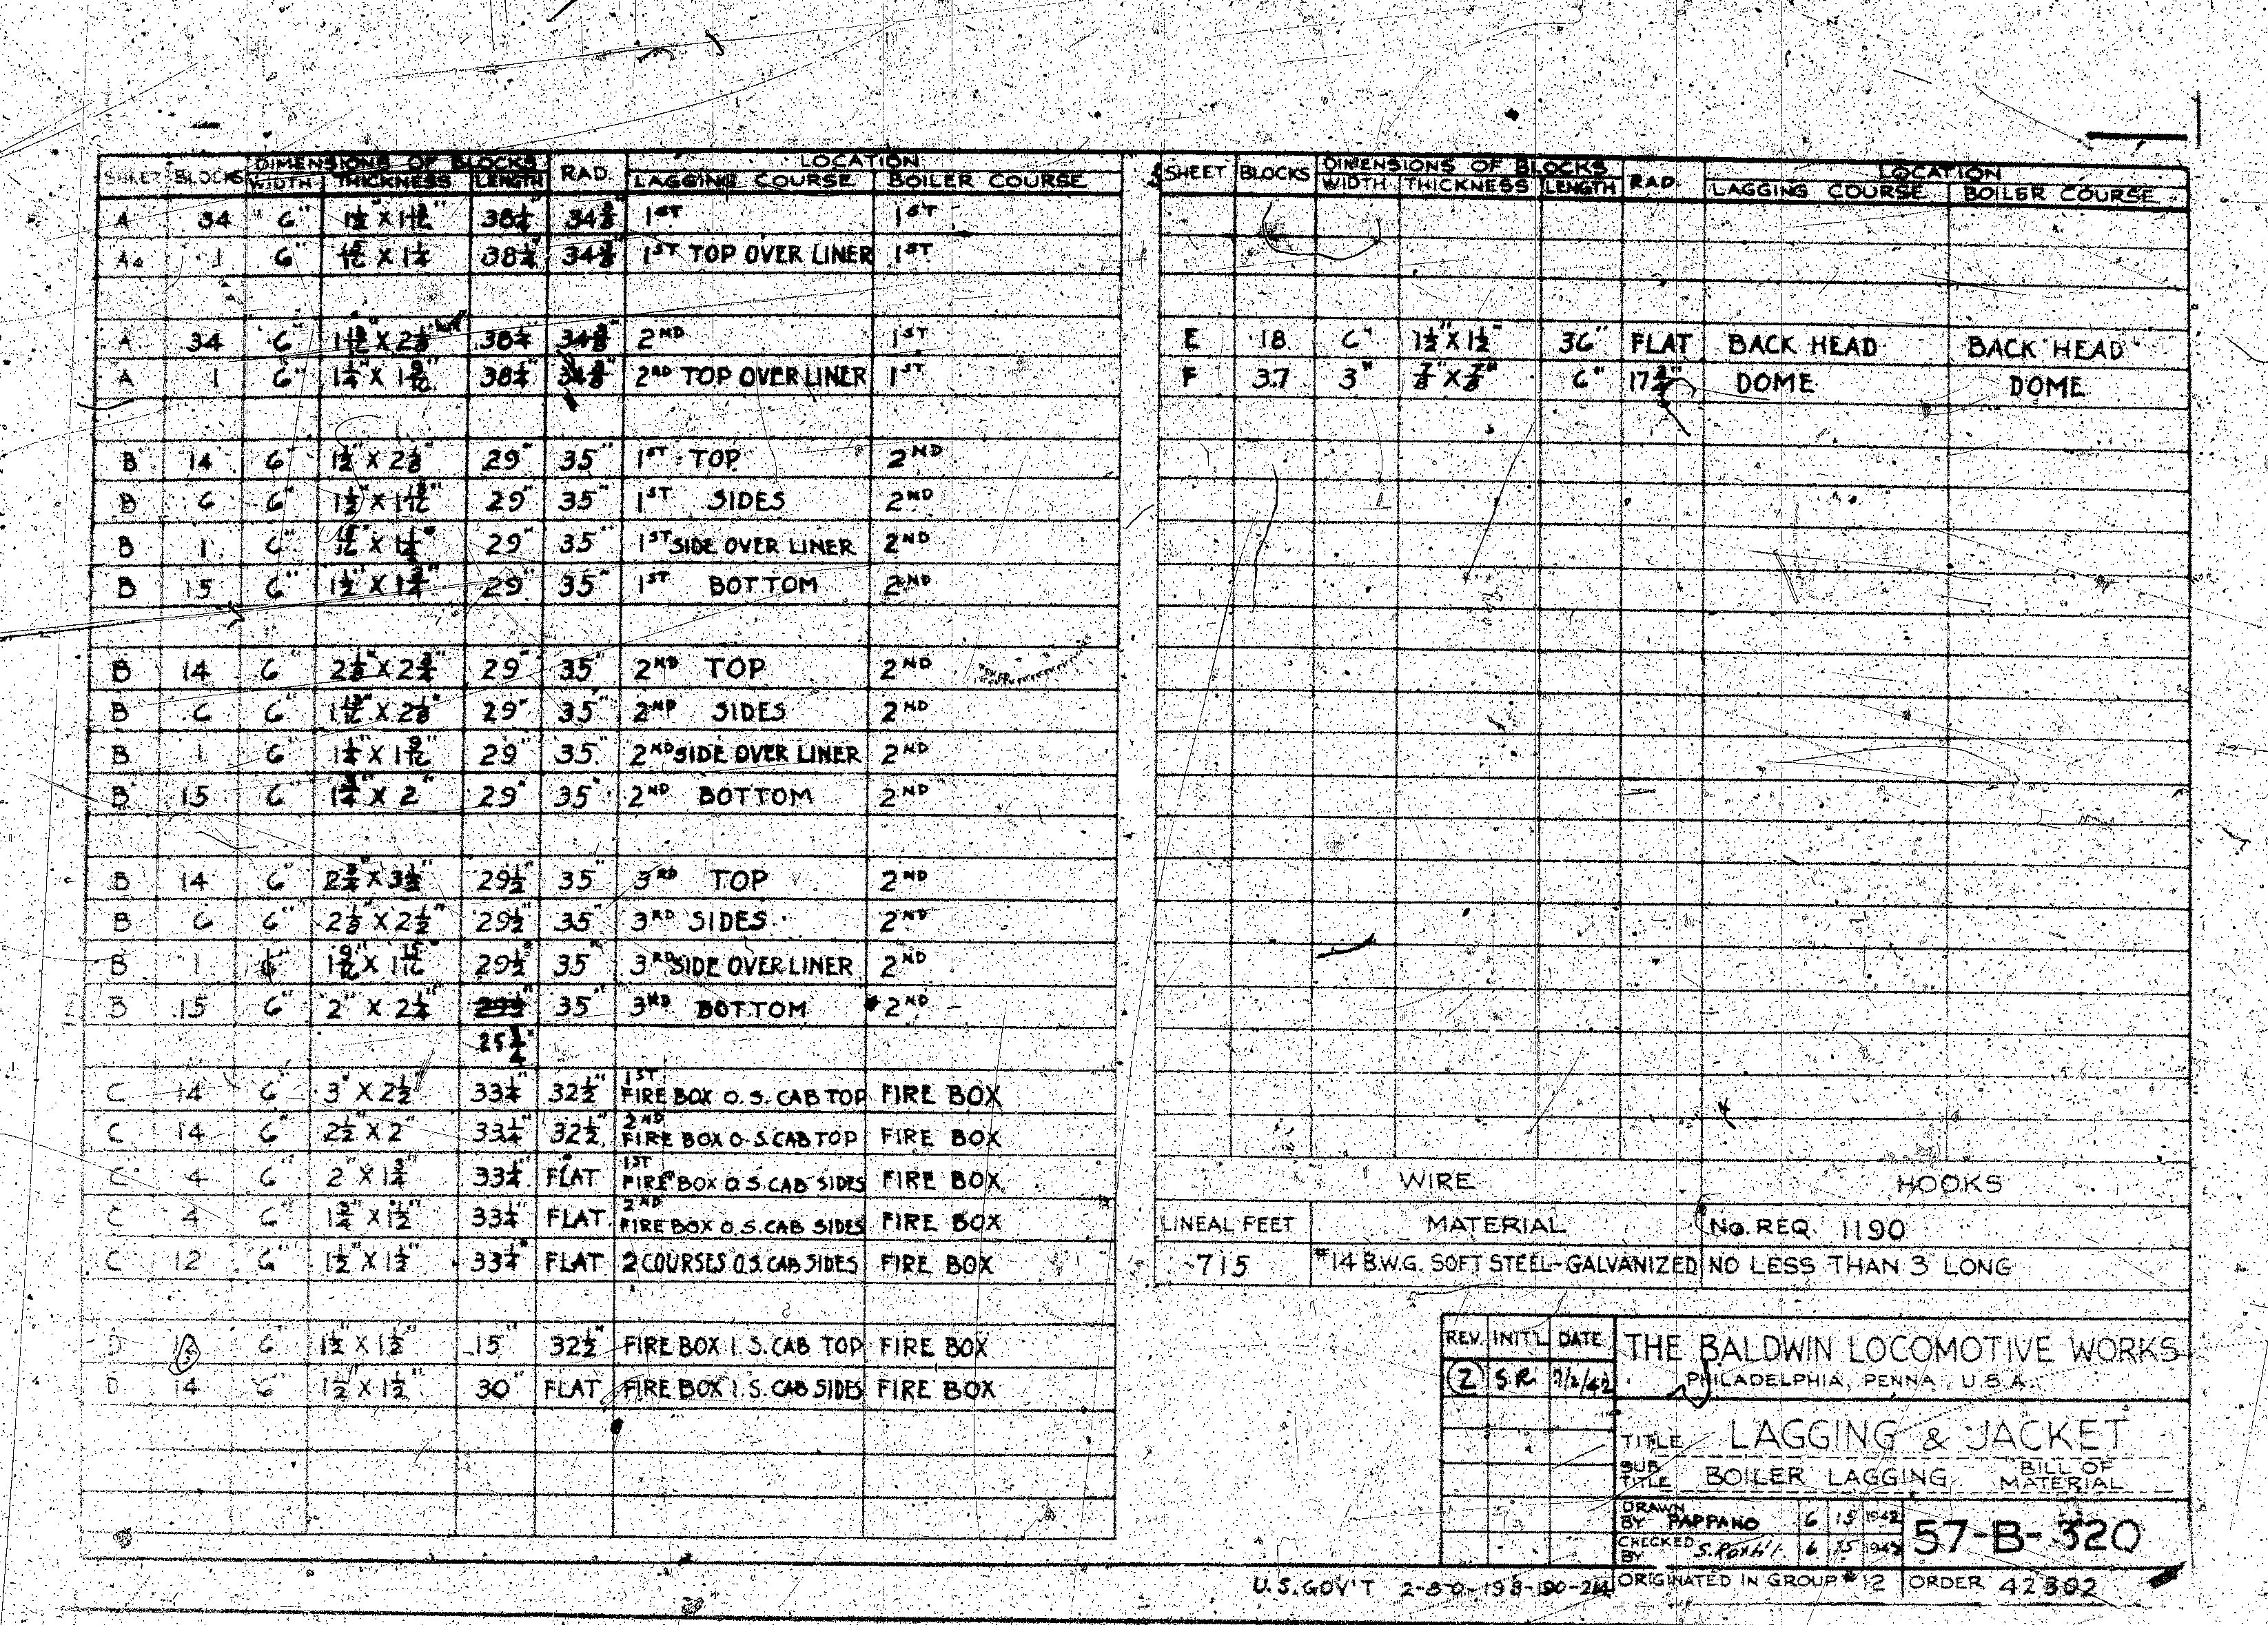 SHEET BLOCKS DIMENSIONS OF BLOCKS RAD. LOCATION
WIDTH THICKNESS LENGTH LAGGING COURSE BOILER COURSE
A 34 6" 38¼" 1ST 1ST
1 6" 38¼" 1ST TOP OVER LINER 1ST
A 34 6" 38¼" 2ND 1ST
A 1 6" 38¼" 2ND TOP OVER LINER 1ST
B 14 6" 1½" X 2⅛" 29" 35" 1ST TOP 2ND
B 6 6" 29" 35" 1ST SIDES 2ND
B 1 6" 29" 35" 1ST SIDE OVER LINER 2ND
B 15 6" 1½" X 1¾" 29" 35" 1ST BOTTOM 2ND
B 14 6" 2⅛" X 2¾" 29" 35" 2ND TOP 2ND
B 6 6" 29" 35" 2ND SIDES 2ND
B 1 6" 1¼" X 1 9/16" 29" 35" 2ND SIDE OVER LINER 2ND
B 15 6" 1¾" X 2" 29" 35" 2ND BOTTOM 2ND
B 14 6" 29½" 35" 3RD TOP 2ND
B 6 6" 2⅛" X 2½" 29½" 35" 3RD SIDES 2ND
B 1 6" 1 9/16" X 1 15/16" 29½" 35" 3RD SIDE OVER LINER 2ND
B 15 6" 2" X 2¼" 35" 3RD BOTTOM 2ND
25¾"
C 14 6" 3" X 2½" 33¼" 32½" 1ST FIRE BOX O.S. CAB TOP FIRE BOX
C 14 6" 2½" X 2" 33¼" 32½" 2ND FIRE BOX O.S. CAB TOP FIRE BOX
C 4 6" 2" X 1¾" 33¼" FLAT 1ST FIRE BOX O.S. CAB SIDES FIRE BOX
C 4 6" 1¾" X 1½" 33¼" FLAT 2ND FIRE BOX O.S. CAB SIDES FIRE BOX
C 12 6" 1½" X 1½" 33¼" FLAT 2 COURSES O.S. CAB SIDES FIRE BOX
D 6" 1½" X 1½" 15" 32½" FIRE BOX I.S. CAB TOP FIRE BOX
D 14 6" 1½" X 1½" 30" FLAT FIRE BOX I.S. CAB SIDES FIRE BOX
SHEET BLOCKS DIMENSIONS OF BLOCKS RAD. LOCATION
WIDTH THICKNESS LENGTH LAGGING COURSE BOILER COURSE
E 18 6" 1½" X 1½" 36" FLAT BACK HEAD BACK HEAD
F 37 3" ⅞" X ⅞" 6" DOME DOME
WIRE HOOKS
LINEAL FEET MATERIAL No. REQ. 1190
715 #14 B.W.G. SOFT STEEL-GALVANIZED NO LESS THAN 3" LONG
REV. INIT'L DATE
2 S.R. 7/2/42
THE BALDWIN LOCOMOTIVE WORKS
PHILADELPHIA, PENNA., U.S.A.
TITLE LAGGING & JACKET
SUB TITLE BOILER LAGGING BILL OF MATERIAL
DRAWN BY PAPPANO 6 15 1942
CHECKED BY 6 15 1942
57-B-320
U.S. GOV'T ORIGINATED IN GROUP #12 ORDER 42302